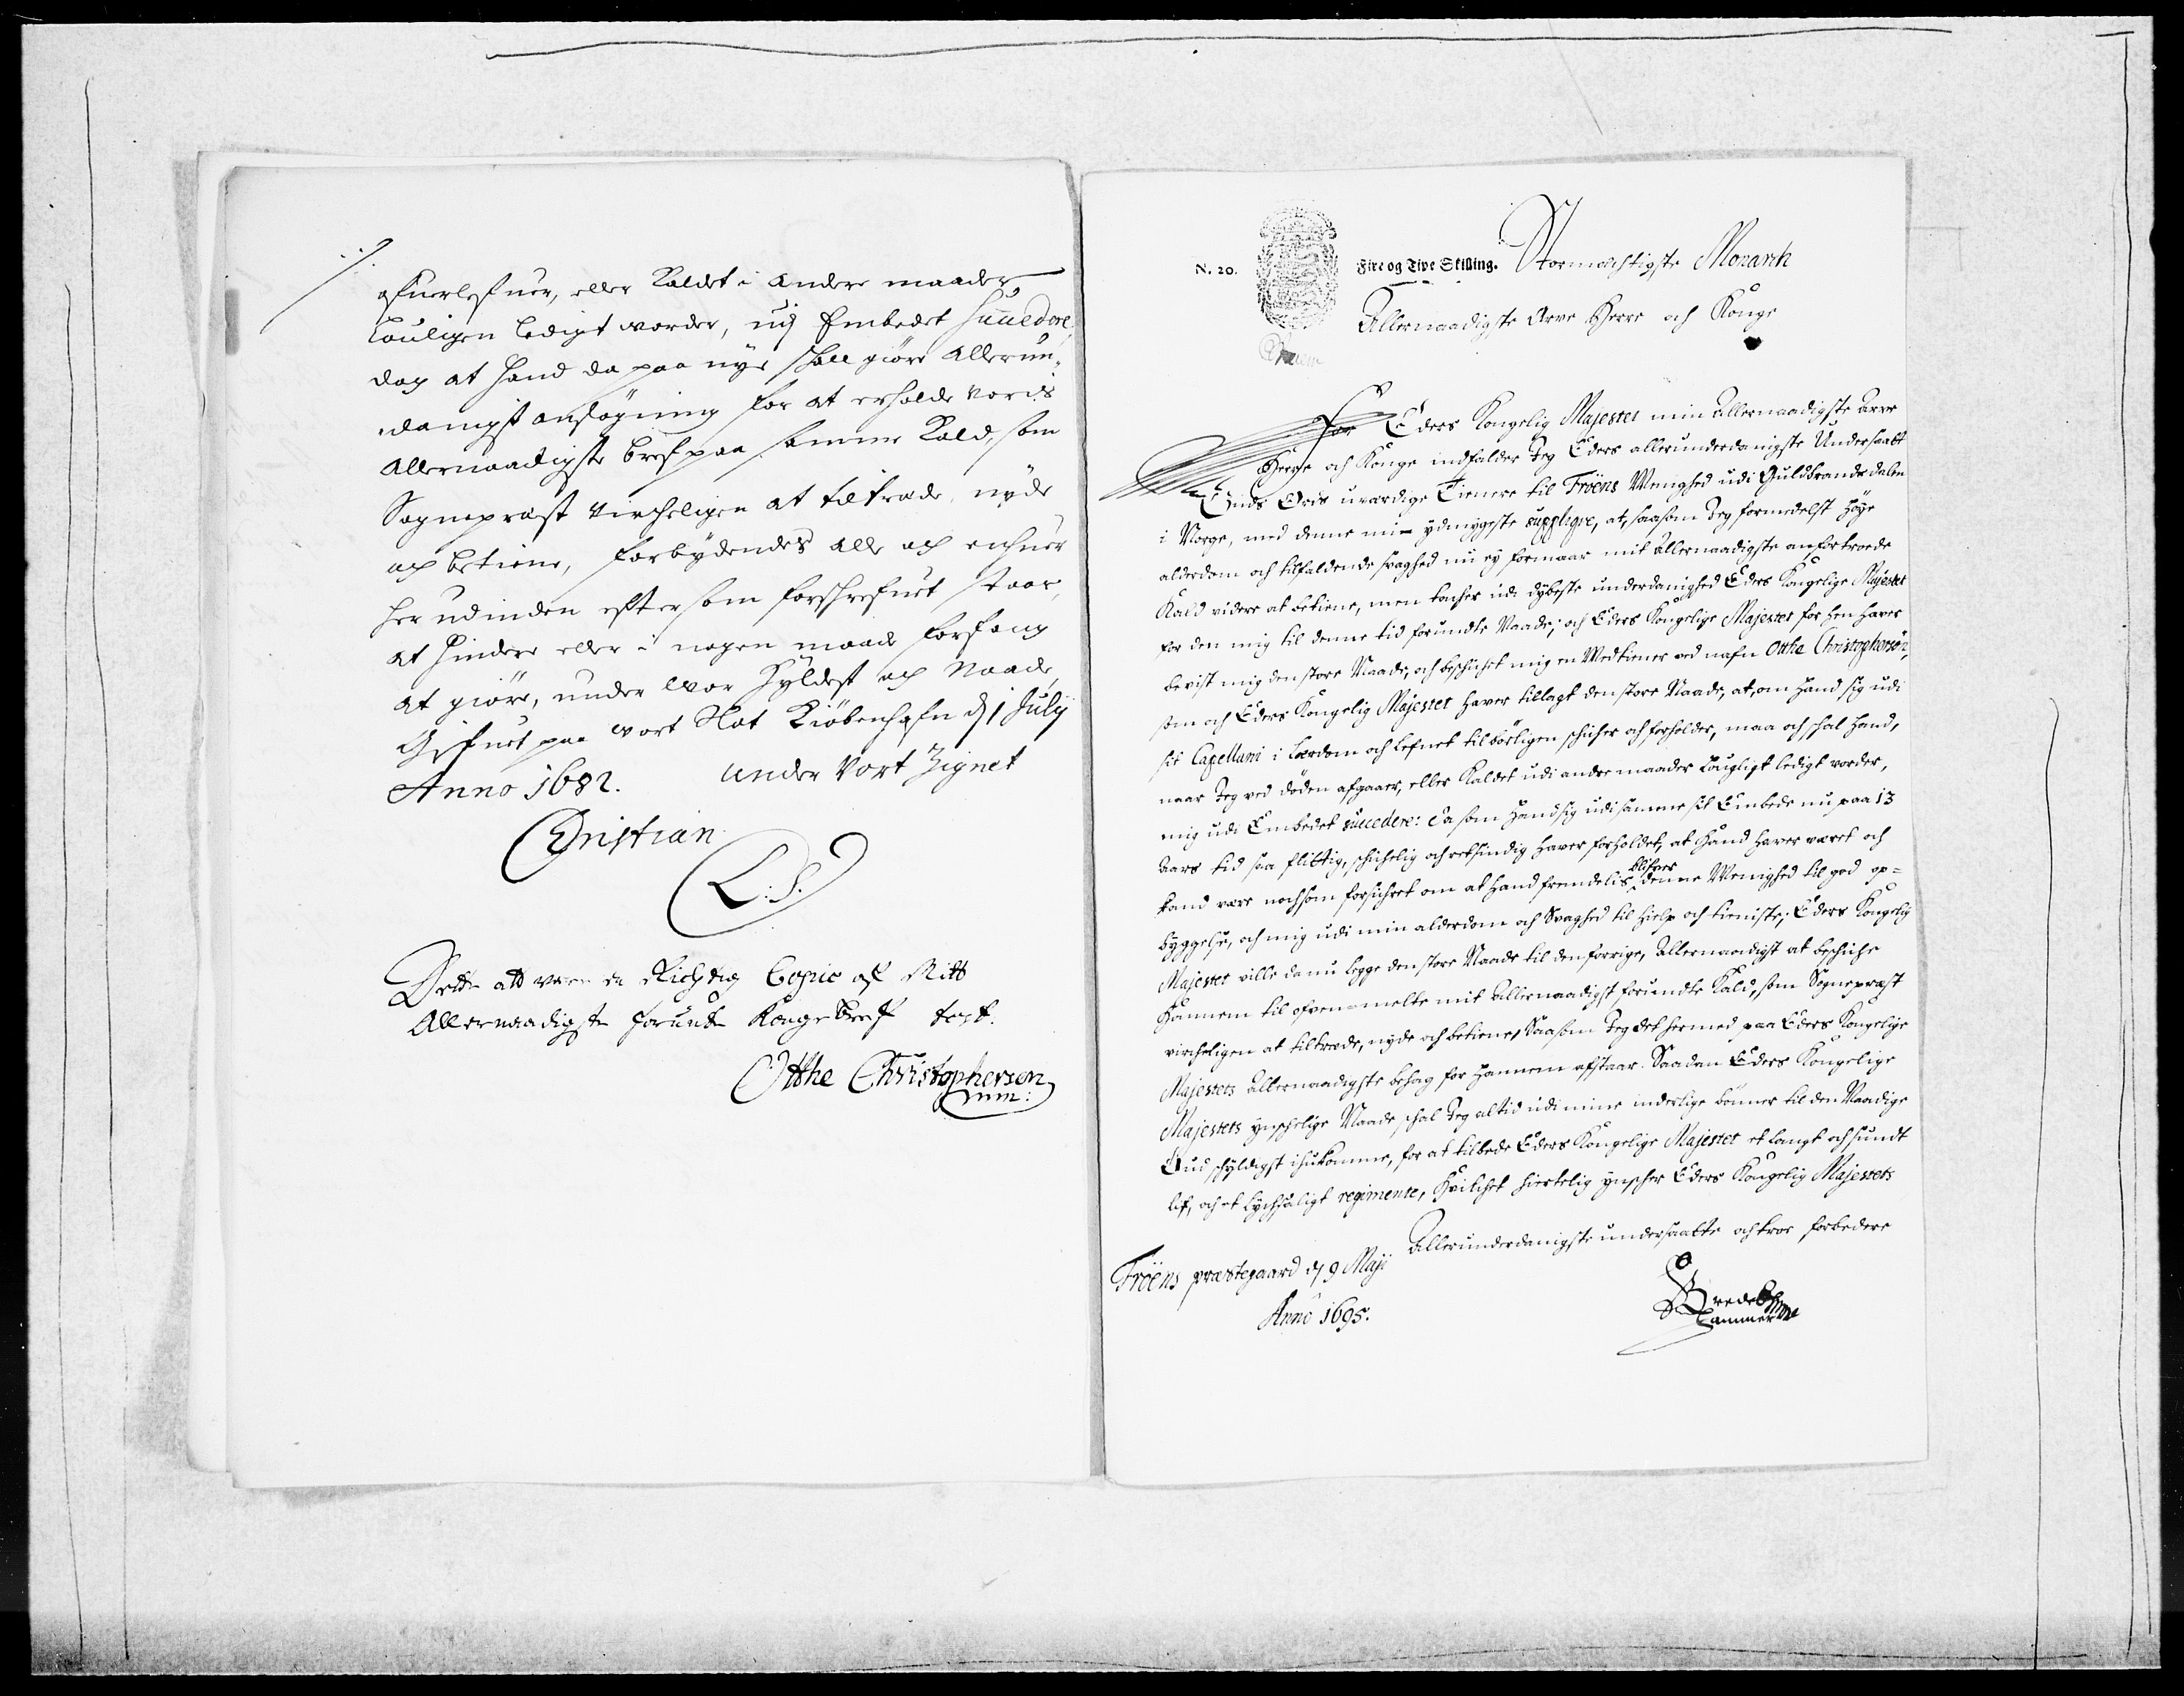 ./.
ofuerlefuer, eller Kaldet i andre maader
louligen ledigt vorder, udj Embedet Succedere
dog at hand da paa nye skall giøre allerun¬
danigst ansøgning for at erholde voris
allernaadigste bref paa samme Kald, som
Sognepræst vircheligen at tiltræde, nyde
og betiene, forbydendes alle og enhuer
her udinden eftersom forschrefuet staar,
at hindre eller i nogen maade forfang
at giøre, under vor Hyldest og Naade,
Gifuet paa vort Slot Kiøbenhafn dj 1 July
Anno 1682. under Vort Zignet
Christian
L: S.
Dette att være en Richtig Copie af Mitt
Allernaadigste forundte Konge Breff test.
Otthe Christophersen
mm:
N. 20. Fire og Tive Skilling. Stormæchtigste Monarch
Allernaadigste Arve Herre och Konge
For Eders Kongelig Majestet min allernaadigste Arve
Herre och Konge indfalder Jeg Eders allerunderdanigste Undersaatt
Guds Ords uværdige Tienere til Fröens Menighed udi Guldbrandsdalen
i Norge, med denne min ydmygeste supplique, at, saasom Jeg formedelst høye
alderdom och tilfaldende svaghed nu ey formaar mit allernaadigste anfortroede
Kald videre at betiene, men tacher udi dybeste underdanighed Eders Kongelige Majestet
for den mig til denne tid forundte Naade; och Eders Kongelige Majestet for hen haver
bevist mig den store Naade, och beschichet mig en Medtiener ved nafn Otthe Christophersön,
som och Eders Kongelig Majestet haver tillagt den store Naade, at, om hand sig udi
sit Capellani i Lærdom och Lefnet tilbörligen schicher och forholder, maa och schal hand,
naar Jeg ved döden afgaaer, eller Kaldet udi andre maader lougligt ledigt vorder,
mig udi Embedet succedere: Da som Hand sig udi samme sit Embede nu paa 13
Aars tid saa flittig, schichelig och retsindig haver forholdet, at Hand haver været och
kand være nochsom forsichret om at hand fremdelis blifver denne Menighed til god op=
byggelse, och mig udi min alderdom och Svaghed til hielp och tieniste; Eders Kongelig
Majestet ville da nu legge den store Naade til den forrige, allernaadigst at beschiche
Hannem til ofven=melte mit allernaadigst forundte Kald, som Sognepræst
vircheligen at tiltræde, nyde och betiene, Saasom Jeg det hermed paa Eders Kongelige
Majestets allernaadigste behag for Hannem afstaar. Saadan Eders Kongelige
Majestets ynschelige Naade schal Jeg altid udi mine inderlige bönner til den Naadige
Gud schyldigst ihukomme, for at tilbede Eders Kongelige Majestet et langt och sundt
lif, och et lychsaligt regimente, Hvilchet hiertelig ynscher Eders Kongelig Majestets
Allerunderdanigste undersaatte och troe forbedere
Fröens præstegaard dj 9 Maji
Anno 1695.